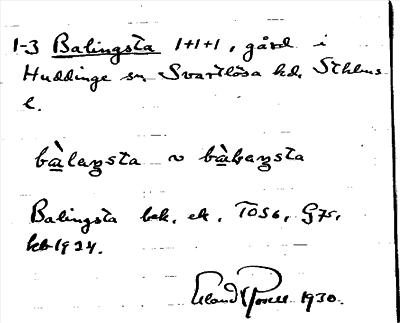 1-3 Balingsta 1+1+1, gård i
Huddinge sn Svartlösa hd. Sthlms
l.
bàlaŋsta ~ bàḷaŋsta
Balingsta bek. ek. TOS6, G75,
kb 1924.
1930.